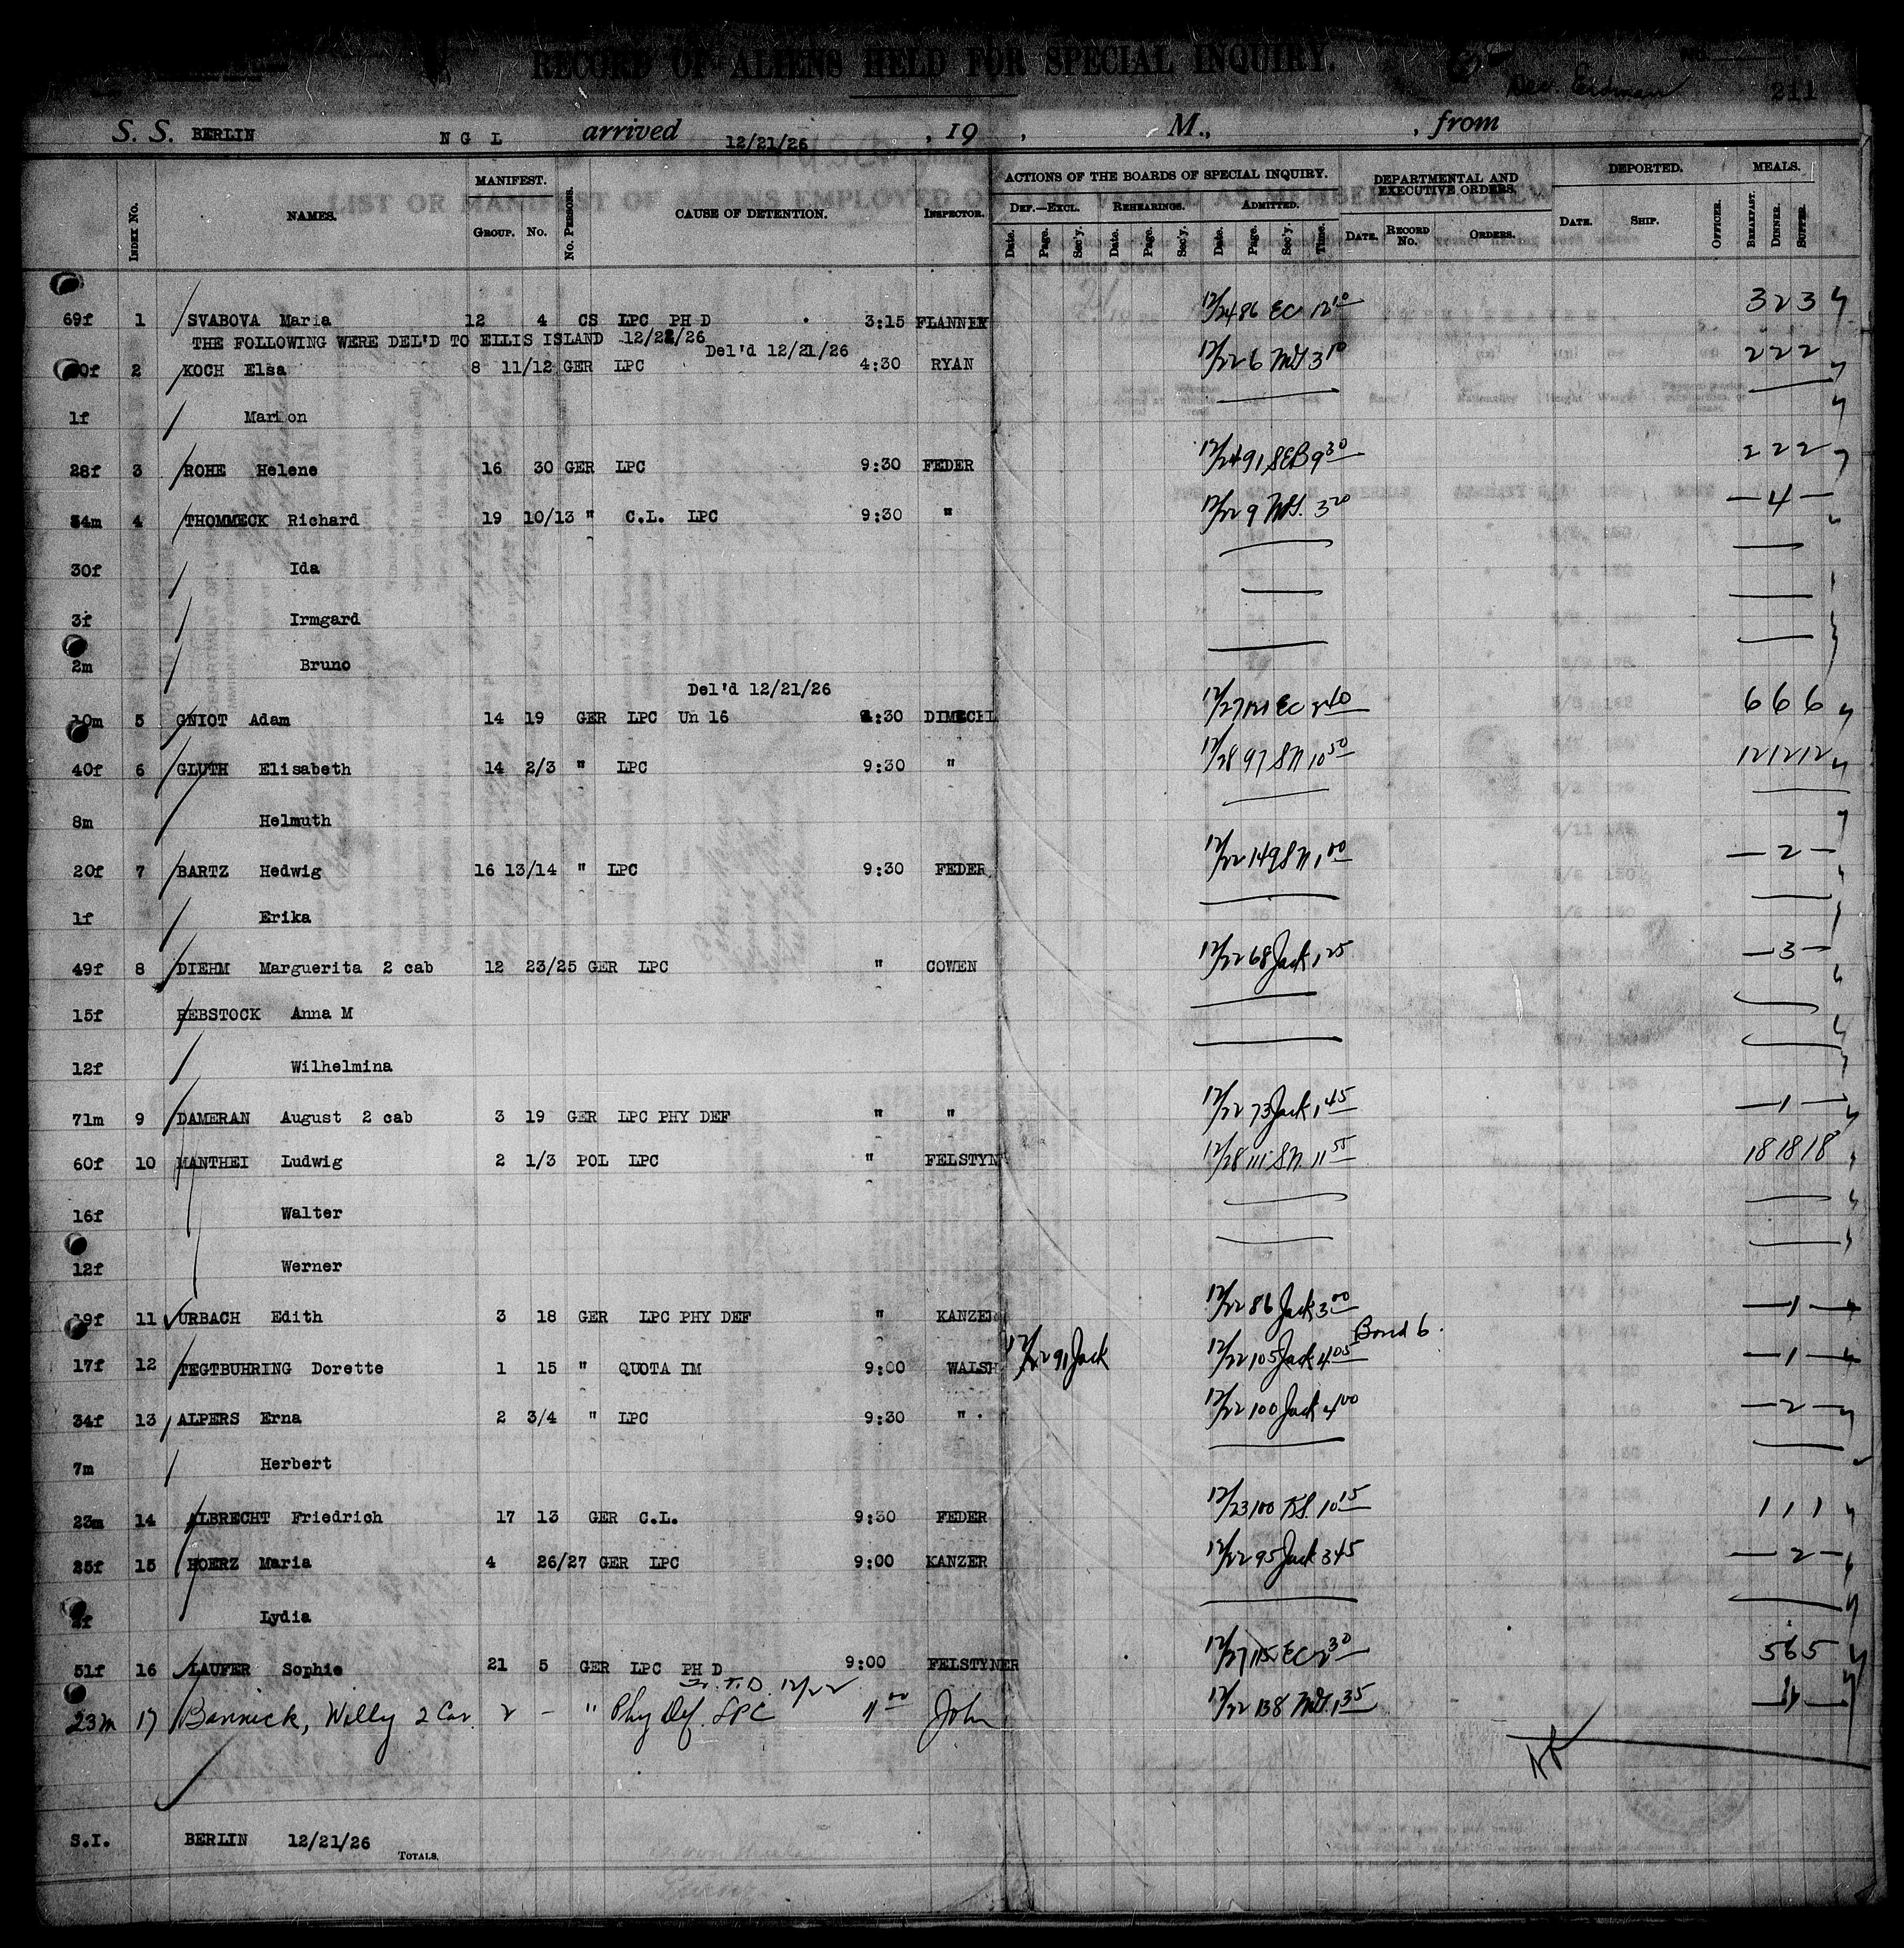 RECORD OF ALIENS HELD FOR SPECIAL INQUIRY.
Erdman
211
S. S. BERLIN N G L arrived 12/21/26 , 19 , M., , from
LIST OR MANIFEST OF ALIENS EMPLOYED ON THE VESSEL AS MEMBERS OF CREW
INDEX No. NAMES. MANIFEST. GROUP. No. No. PERSONS. CAUSE OF DETENTION. INSPECTOR. ACTIONS OF THE BOARDS OF SPECIAL INQUIRY. DEPARTMENTAL AND EXECUTIVE ORDERS. DEPORTED. MEALS.
DEF.—EXCL. REHEARINGS. ADMITTED.
Date. Page. Sec'y. Date. Page. Sec'y. Date. Page. Sec'y. Time. DATE. RECORD No. ORDERS. DATE. SHIP. OFFICER. BREAKFAST. DINNER. SUPPER.
69f 1 SVABOVA Maria 12 4 CS LPC PH D 3:15 FLANNER 12/24 86 EC 12 10 3 2 3
THE FOLLOWING WERE DEL'D TO ELLIS ISLAND 12/22/26
Del'd 12/21/26
2 KOCH Elsa 8 11/12 GER LPC 4:30 RYAN 12/22 6 MS 3 10 2 2 2
1f Marion
28f 3 ROHE Helene 16 30 GER LPC 9:30 FEDER 12/24 91 SEB 9 30 2 2 2
34m 4 THOMMECK Richard 19 10/13 " C.L. LPC 9:30 " 12/22 9 MS. 3 20 — 4 —
30f Ida
3f Irmgard
2m Bruno
Del'd 12/21/26
5 GNIOT Adam 14 19 GER LPC Un 16 4:30 12/27 EC 40 6 6 6
40f 6 GLUTH Elisabeth 14 2/3 " LPC 9:30 " 12/28 97 SN 10 50 12 12 12
8m Helmuth
20f 7 BARTZ Hedwig 16 13/14 " LPC 9:30 FEDER 12/22 149 SN 1 00 — 2 —
1f Erika
49f 8 DIEHM Marguerita 2 cab 12 23/25 GER LPC " COWEN 12/22 68 Jack 1 25 — 3 —
15f REBSTOCK Anna M
12f Wilhelmina
71m 9 DAMERAN August 2 cab 3 19 GER LPC PHY DEF " " 12/22 73 Jack 1 45 — 1 —
60f 10 MANTHEI Ludwig 2 1/3 POL LPC " FELSTYN 12/28 111 SN. 11 55 18 18 18
16f Walter
12f Werner
19f 11 URBACH Edith 3 18 GER LPC PHY DEF " KANZER 12/22 86 Jack 3 00 — 1 —
Bond 6.
17f 12 TEGTBUHRING Dorette 1 15 " QUOTA IM 9:00 WALSH 12/22 91 Jack 12/22 105 Jack 4 05 — 1 —
34f 13 ALPERS Erna 2 3/4 " LPC 9:30 " 12/22 100 Jack 4 00 — 2 —
7m Herbert
23m 14 ALBRECHT Friedrich 17 13 GER C.L. 9:30 FEDER 12/23 100 10 15 1 1 1
25f 15 HOERZ Maria 4 26/27 GER LPC 9:00 KANZER 12/22 95 Jack 3 45 — 2 —
Lydia
51f 16 LAUFER Sophie 21 5 GER LPC PH D 9:00 FELSTYNER 12/27 115 EC 2 30 5 6 5
12/22
23m 17 Bannick, Willy 2 Cab. 2 — " Phy Def. LPC 11 00 John 12/22 138 MS. 1 35 — 1 —
S.I. BERLIN 12/21/26
TOTALS.